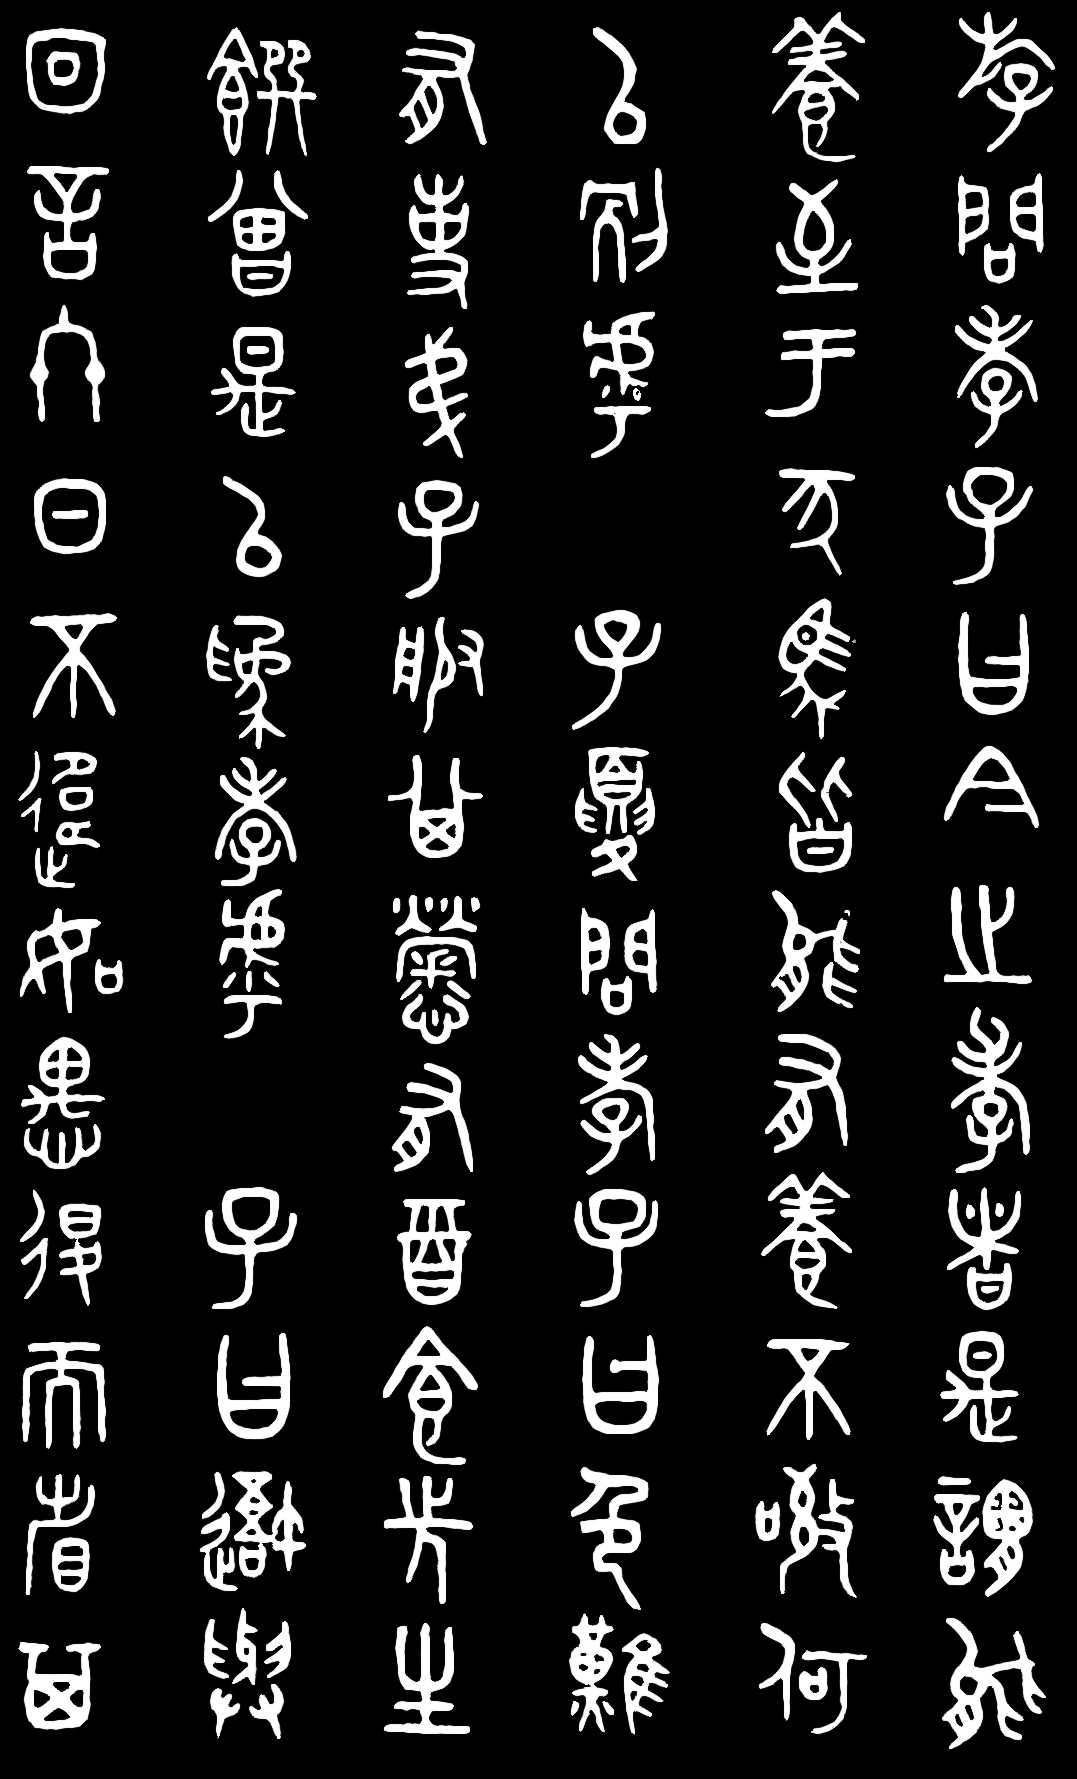 斿問孝子曰今之孝者是謂能
養至于犬馬皆能有養不敬何
以別乎　子夏問孝子曰色難
有事弟子服其勞有酒食先生
饌曾是以為孝乎　子曰吾與
回言終日不違如愚退而省其